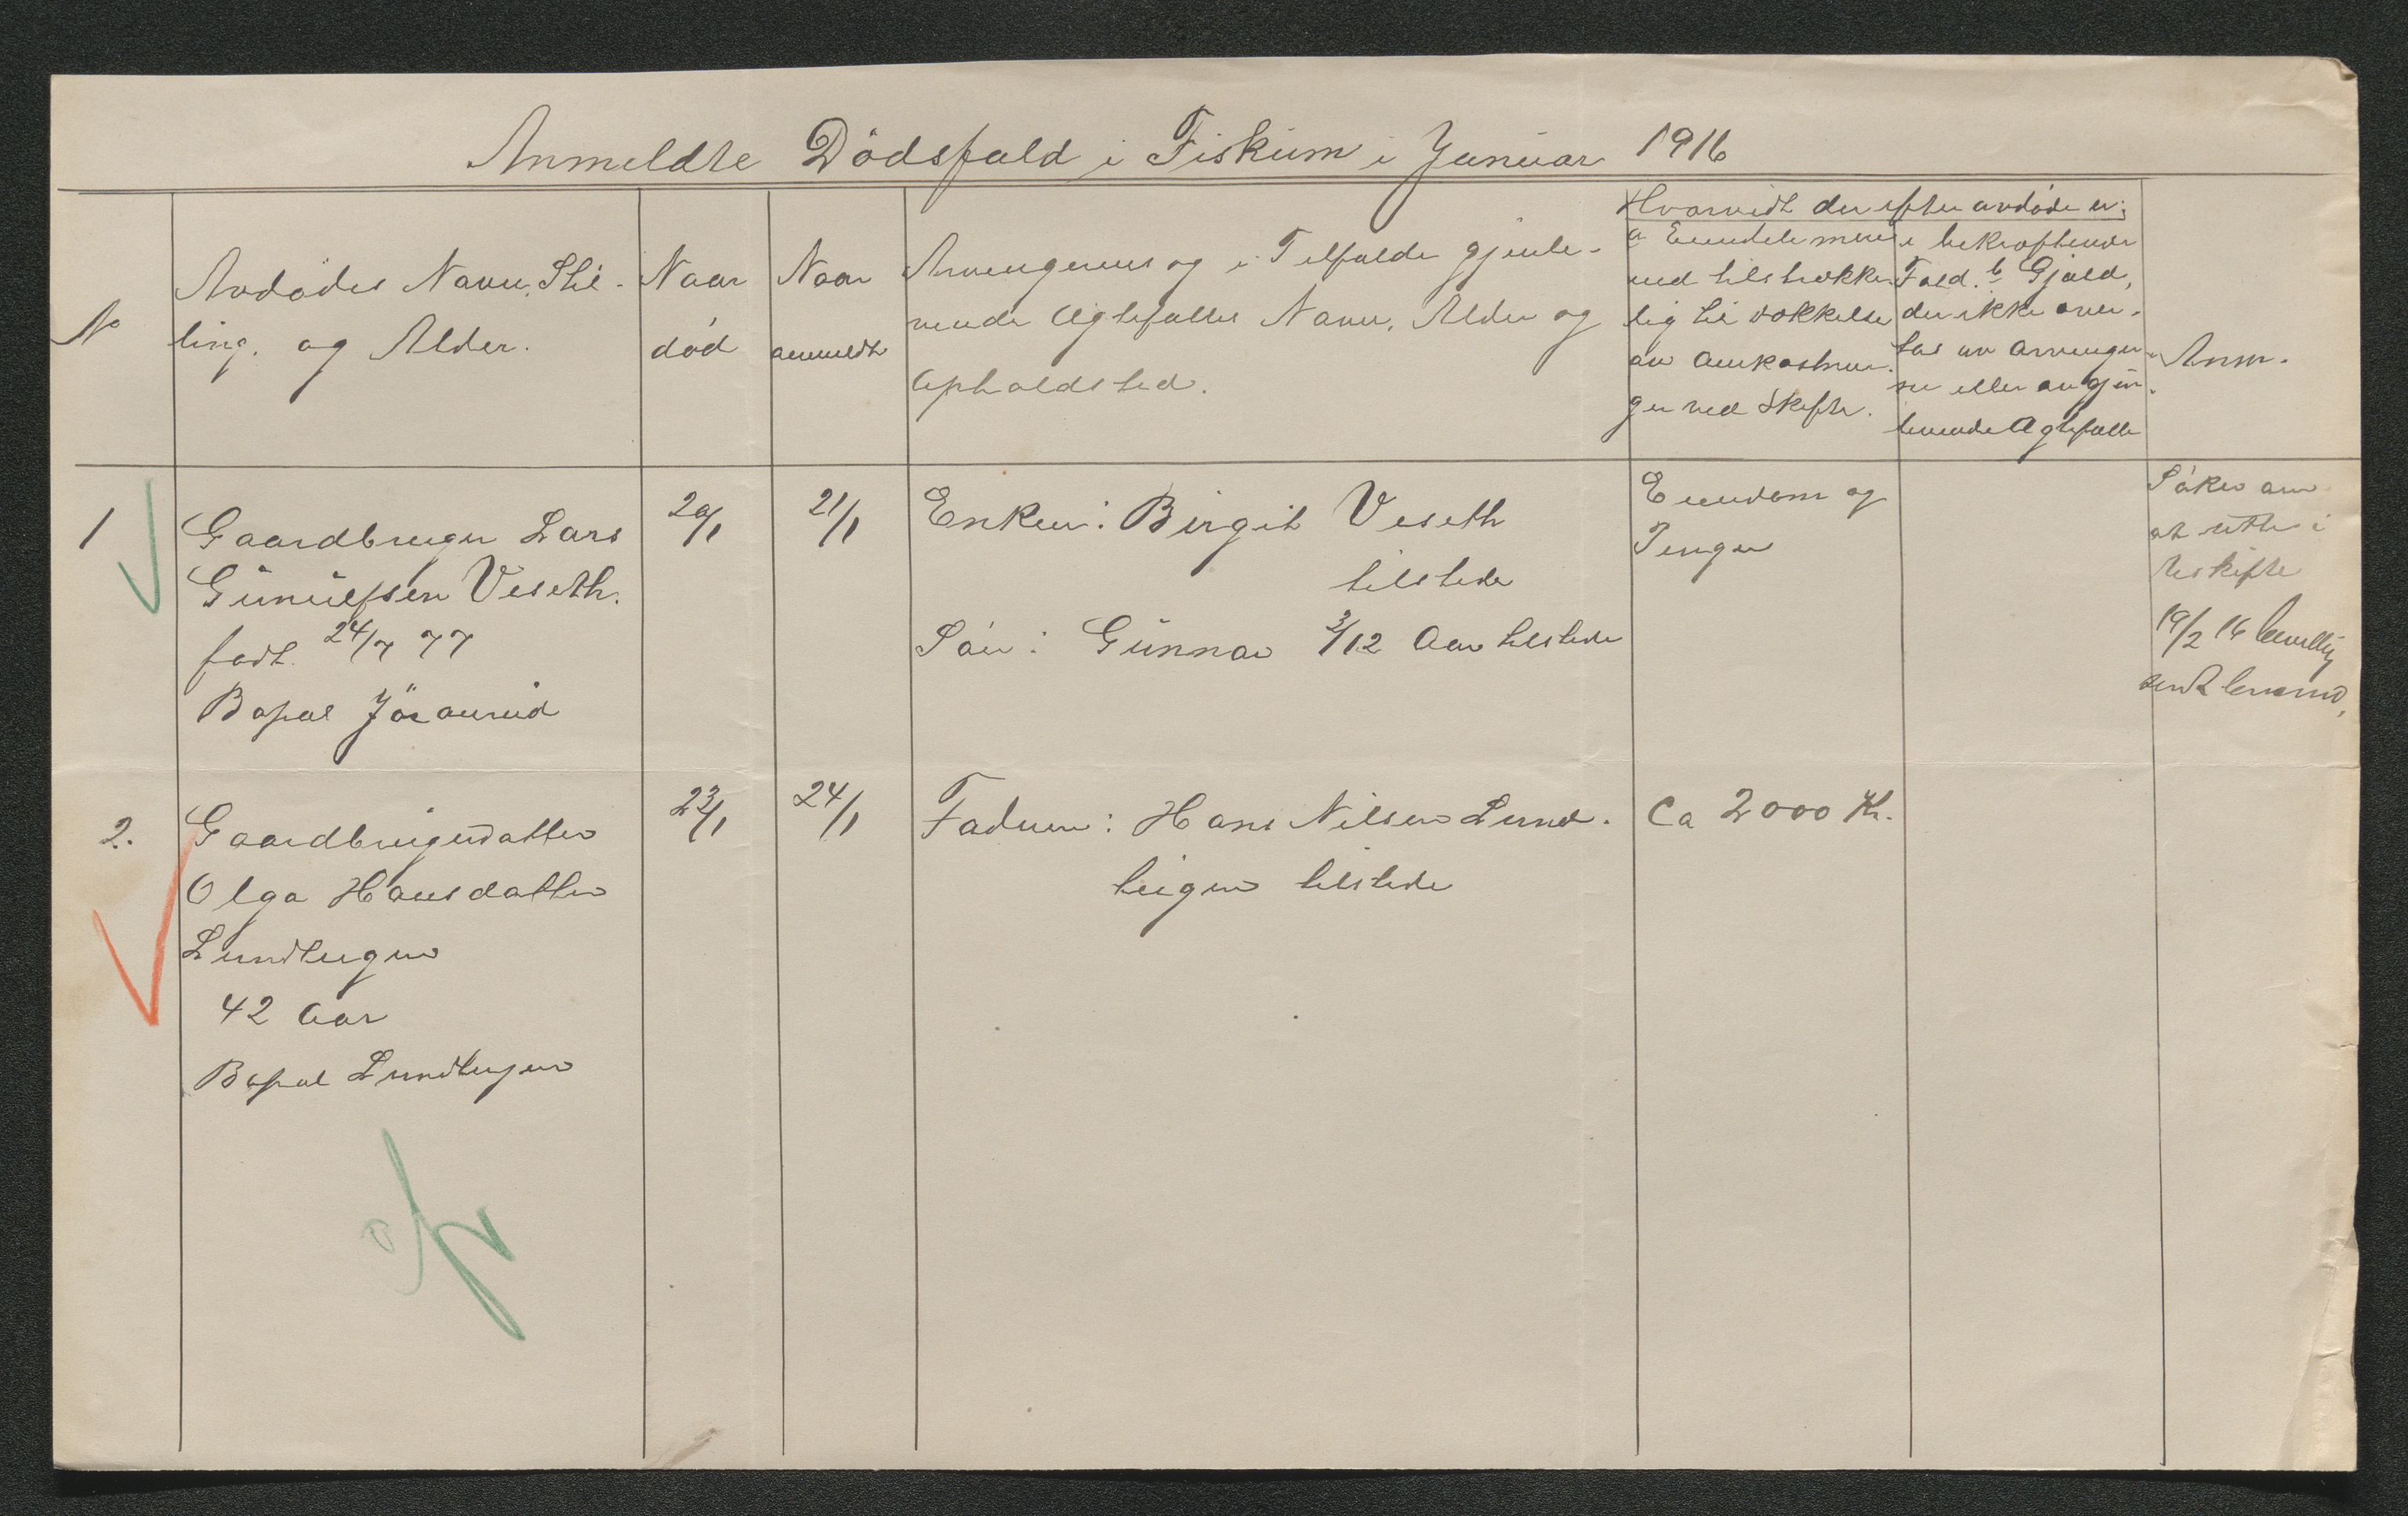 Anmeldte Dödsfald i Fiskum i Januar 1916
No
Avdödes Navn, Stil-
ling, og Alder.
Naar
död
Naar
anmeldt
Arvingernes og i Tilfælde gjenle-
vende Ægtefælles Navn, Alder og
Opholdsted.
Hvorvidt der efter avdøde er:
a Eiendele mere
end tilstrække-
lig til dækkelse
av omkostnin-
ger ved Skifte.
i bekræftende
Fald. b Gjæld,
der ikke over-
tas av arvinger-
ne eller av gjen-
levende Ægtefælle
Anm.
1
Gaardbruger Lars
Gunulfsen Veseth.
født 24/7 77
Bopæl
20/1
21/1
Enken: Birgit Veseth
tilstede
Søn: Gunnar 3/12 Aar tilstede
Eiendom og
Penger
Søkes om
at sitte i
uskifte
19/2 16 bevilling
sendt lensmd,
2.
Gaardbrugerdatter
Olga Hansdatter
Lundteigen
42 Aar
Bopæl Lundteigen
23/1
24/1
Faderen: Hans Nilsen Lund-
teigen tilstede
Ca 2000 Kr.